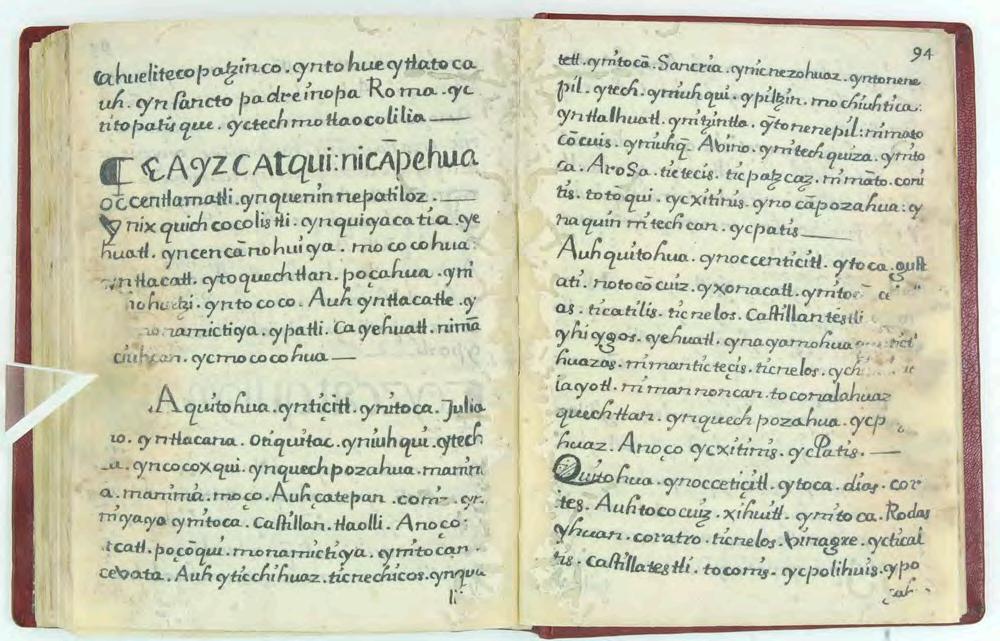 ca huelitecopatzinco. yntohueytlatoca
uh. yn sancto padre inopa Roma. yc
titopatis que. yctechmotlaocolilia
¶ ẽAyzcatqui: nicāpehua
occentlamatli. ynquenin nepatiloz.
ynixquich cocolistli. ynquiyacatia. ye
huatl. yncencānohuiya. mococohua:
yntlacatl. ytoquechtlan. poçahua. ym
yntococo. Auh yntlacatle. y
monamictiya. ypatli. Ca yehuatl. nimā
ciuhcan. ycmococohua
Aquitohua. yntiçitl. ynitoca. Julia
no. yntlacana. Otiquitac. yniuhqui. ytech
yncocoxqui. ynquechpozahua. manim
a. manima. moço. Auh çatepan. yn.
miyaya ynitoca. Castillan. tlaolli. Anoço:
poçōqui. monamictiya. ynitocan.
cevata. Auh yticchihuaz. ticnechicos. ynqua
li
94
tetl. ynitocā. Sancria. ynicnezohuaz. yntonene
pil. ytech. yniuhqui. ypiltzin. mochiuhtica:
yntlalhuatl. ynitzintla. ytonenepil: nimato
cōcuis. yniuhq. Avino. ynitechquiza. ynito
ca. AroSa. tictecis. ticpatzcaz. nimāto. coni
tis. totōqui. ycxitinis. ynocāpozahua: y
naquin mitechcan. ycpatis
Auhquitohua. ynoccenticitl. ytoca. gust
ati. niotocōcuiz. yxonacatl. ynito
as. ticatilis. ticnelos. Castillantestli
yhiygos. yehuatl. ynayamohua
huazas. nimantictecis. ticnelos.
iayotl. nimannoncan. toconalahuaz
quechtlan. ynquechpozahua. ycp
huaz. Anoço ycxitinis. ycPatis.
Quitohua. ynocceticitl. ytoca. dias. cor
tes. Auhtococuiz. xihuitl. ynitoca. Rodas
yhuan. coratro. ticnelos. vinagre. yctical
tis. castillatestli. toconis. ycpolihuis. ypo
zah